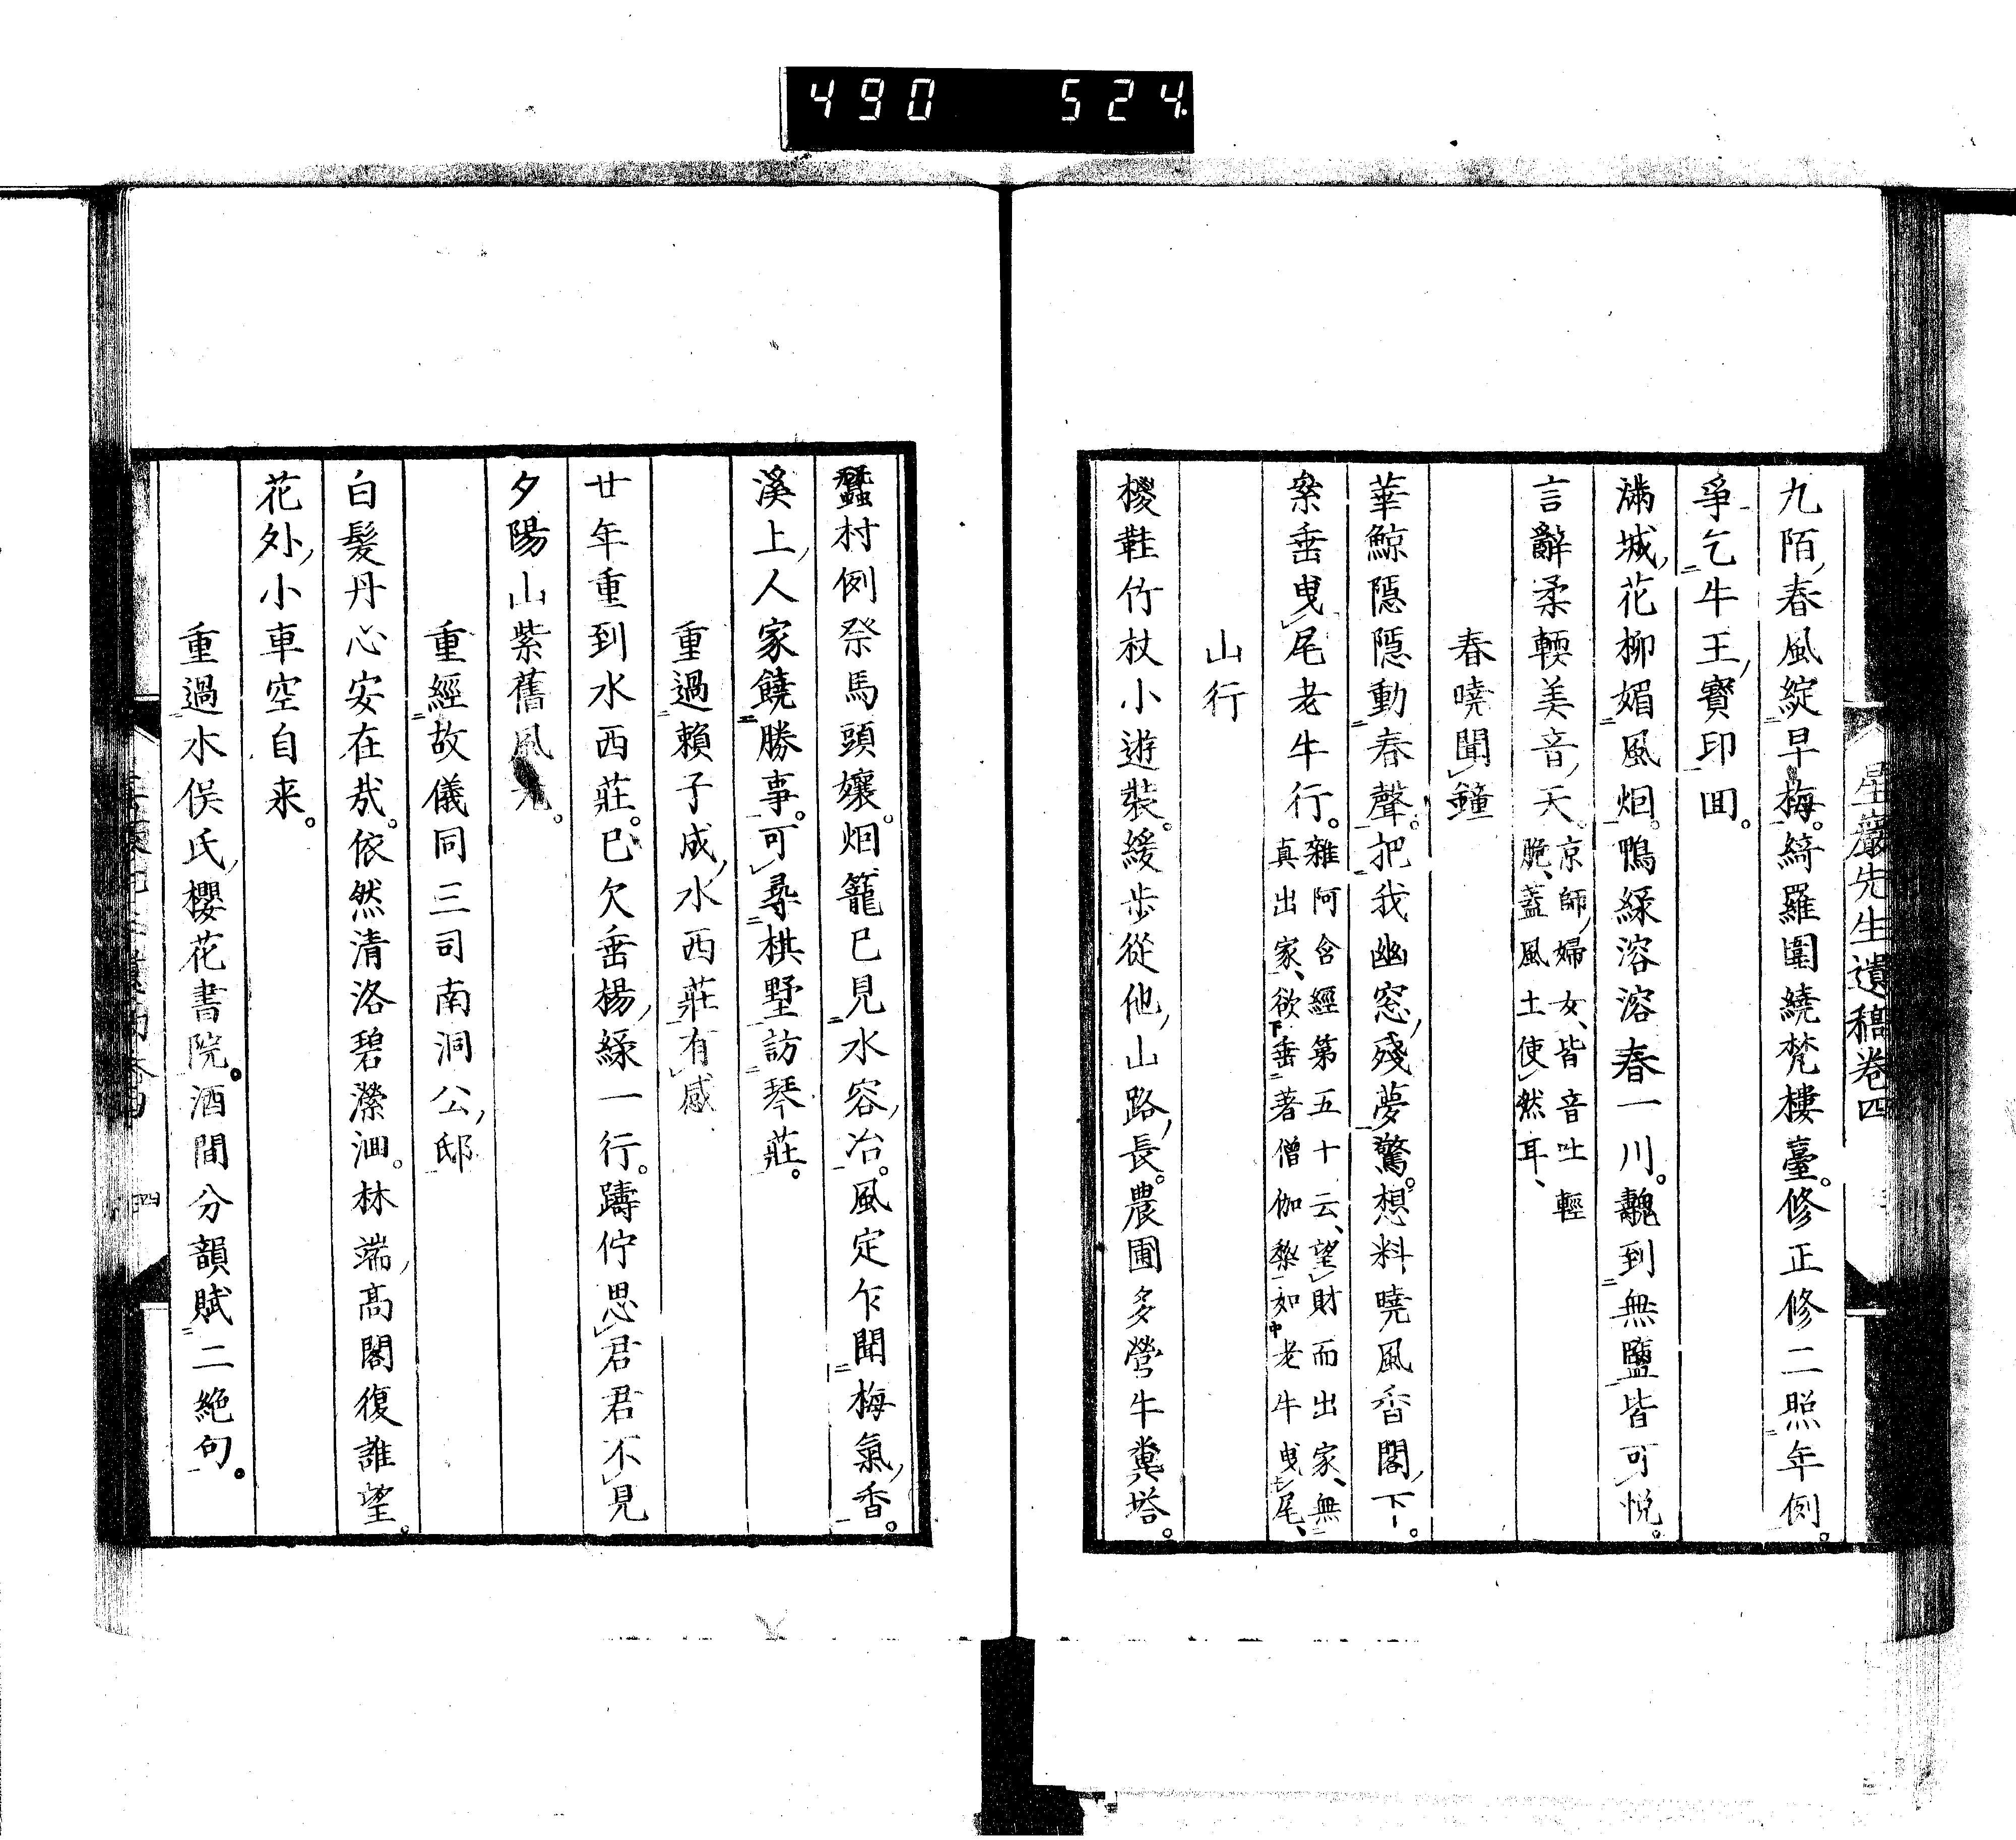 490 524
星巖先生遺稿卷四
九陌春風綻早梅。綺羅圍繞梵樓臺。修正修二照年例。
爭乞牛王寶印囬。
滿城花柳媚風烟。鴨綠溶溶春一川。靚到無鹽皆可悅。
言辭柔輭美音天。京師婦女、皆音吐輕
脆、蓋風土使然耳、
春曉聞鐘
華鯨隱隱動春聲。把我幽窓殘夢驚。想料曉風香閣下。
桊垂曳尾老牛行。雜阿含經第五十云、望財而出家、無
真出家、欲垂著僧伽黎如老牛曳尾、
山行
椶鞋竹杖小遊裝。緩步從他山路長。農圃多營牛糞塔。
蠶村例祭馬頭孃。烟籠已見水容冶。風定乍聞梅氣香。
溪上人家饒勝事。可尋棋墅訪琴莊。
重過賴子成水西莊有感
廿年重到水西莊。已欠垂楊綠一行。躊佇思君君不見
夕陽山紫舊風光。
重經故儀同三司南洞公邸
白髮丹心安在哉。依然清洛碧瀠洄。林端高閣復誰望。
花外小車空自来。
重過水俣氏櫻花書院。酒間分韻賦二絶句。
四